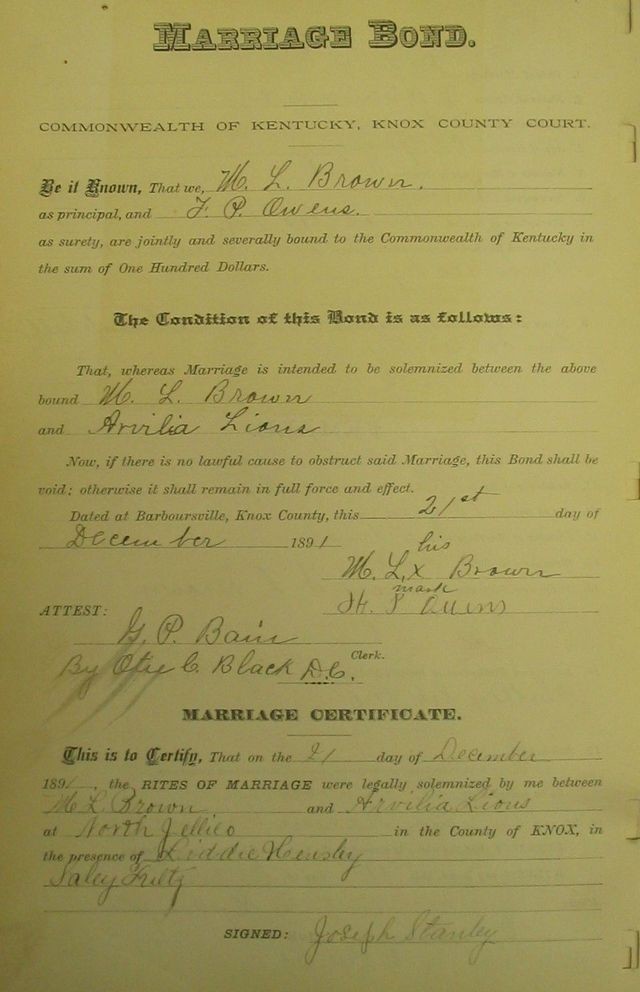 MARRIAGE BOND.
COMMONWEALTH OF KENTUCKY, KNOX COUNTY COURT.
Be it Known, That we, M. L. Brown.
as principal, and F. P. Owens.
as surety, are jointly and severally bound to the Commonwealth of Kentucky in
the sum of One Hundred Dollars.
The Condition of this Bond is as follows:
That, whereas Marriage is intended to be solemnized between the above
bound M. L. Brown
and Arvilia Lions
Now, if there is no lawful cause to obstruct said Marriage, this Bond shall be
void; otherwise it shall remain in full force and effect.
Dated at Barboursville, Knox County, this 21st day of
December 1891
his
M. L. x Brown
mark
ATTEST:
G. P. Bain
Clerk.
By C. Black D.C.
MARRIAGE CERTIFICATE.
This is to Certify, That on the 21 day of December
1891, the RITES OF MARRIAGE were legally solemnized by me between
M L Brown and Arvilia Lions
at North Jellico in the County of KNOX, in
the presence of Liddie Hensley
SIGNED: Joseph Stanley